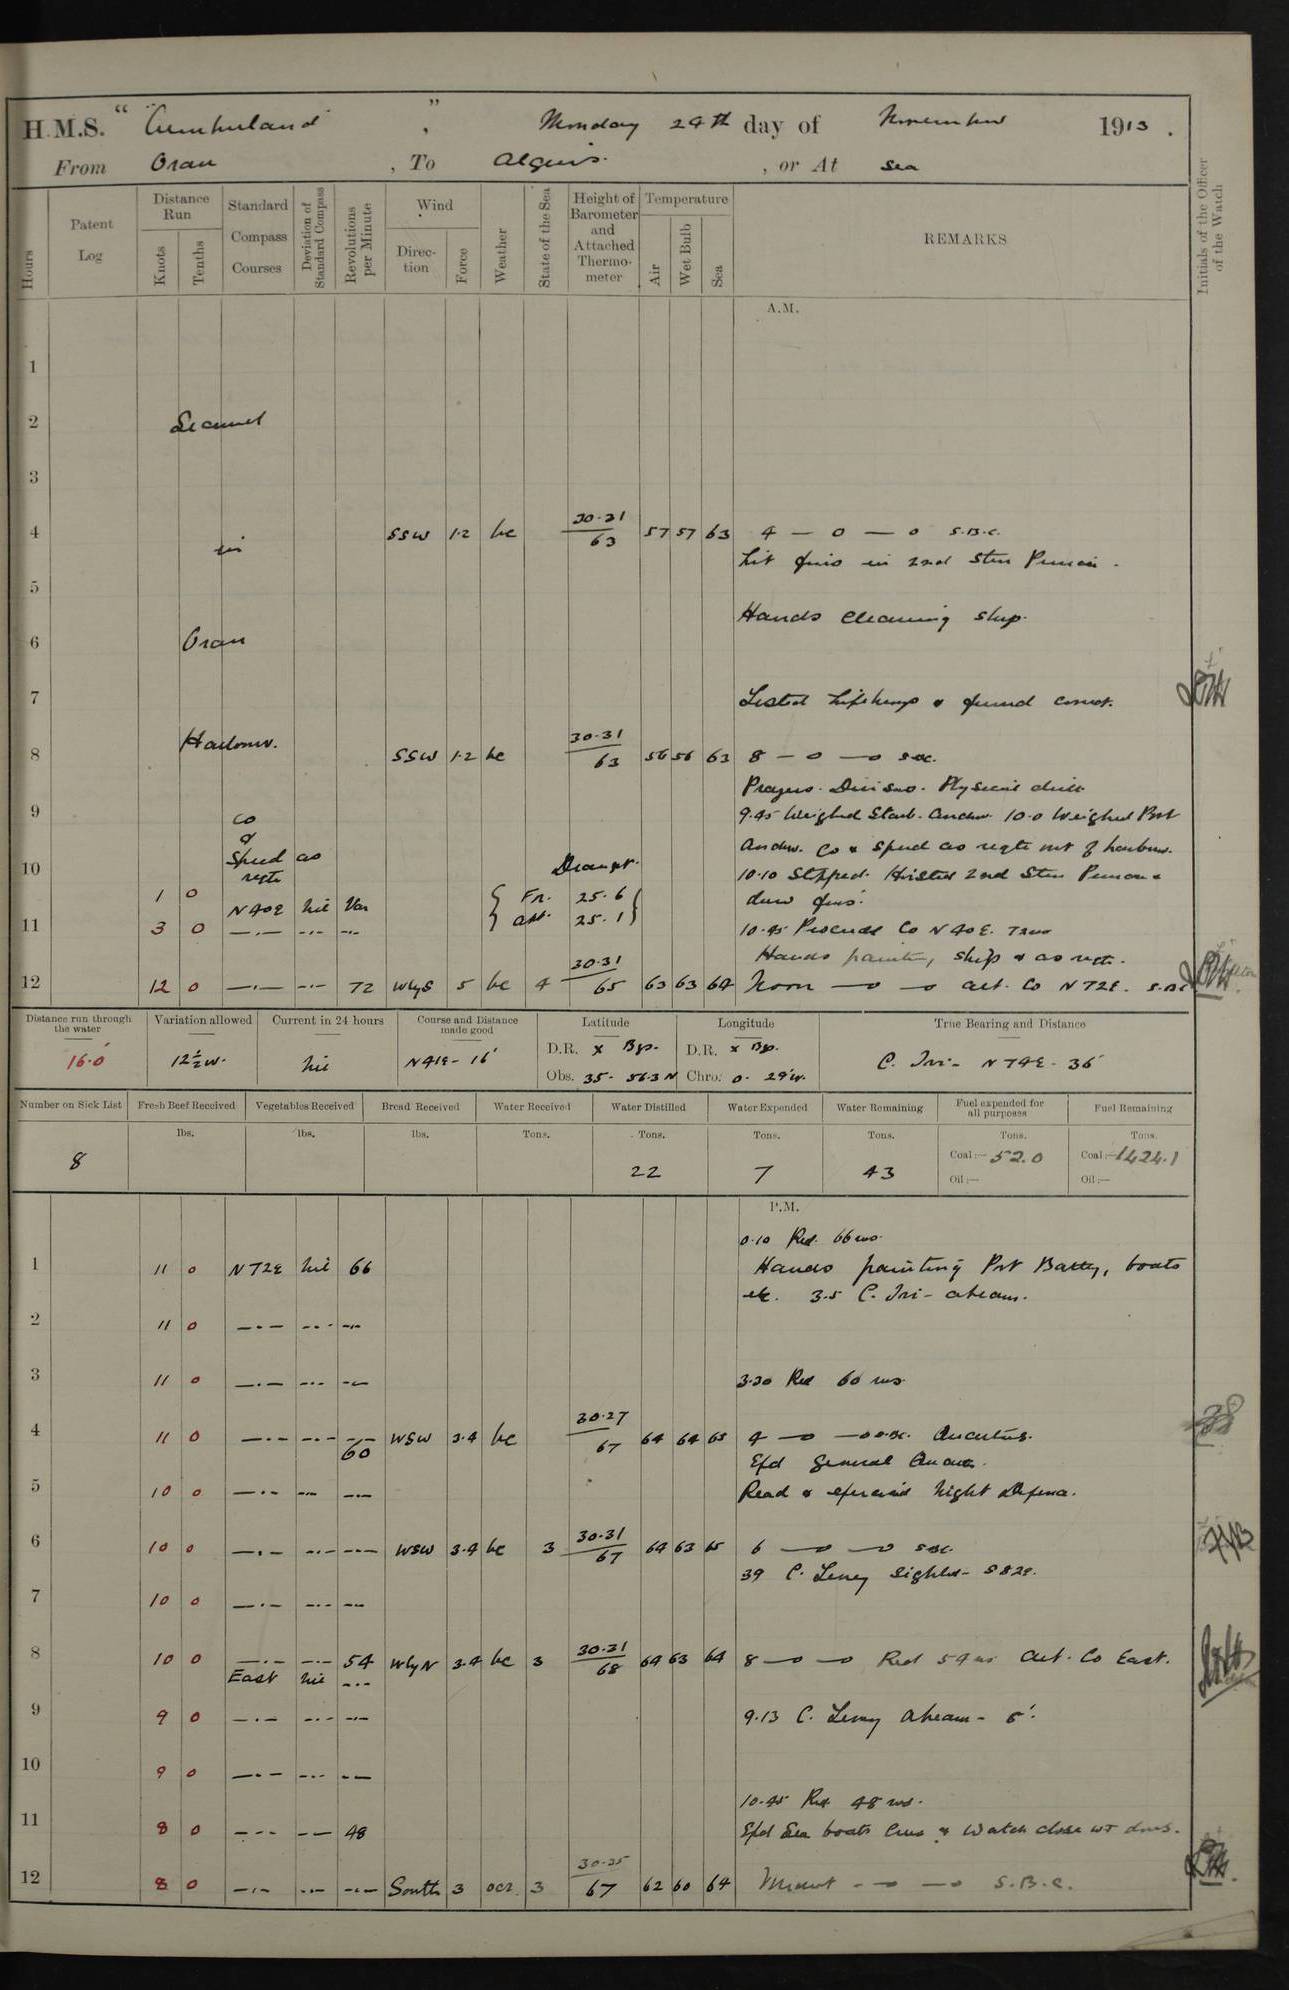 H.M.S. "Cumberland", Monday 24th day of November 1913.
From Oran, To Algiers, or At Sea
Hours
Patent Log
Distance Run
Knots
Tenths
Standard Compass Courses
Deviation of Standard Compass
Revolutions per Minute
Wind
Direction
Force
Weather
State of the Sea
Height of Barometer and Attached Thermometer
Temperature
Air
Wet Bulb
Sea
REMARKS
Initials of the Officer of the Watch
A.M.
1
2 Secured
3
4 SSW 1.2 bc 30.31 63 57 57 63 4 — o — o S.B.C.
in
Lit fires in 2nd Stm Pinnace.
5
Hands cleaning ship.
6 Oran
7 Tested Lifebuoys & found correct.
Harbour.
8 SSW 1.2 bc 30.31 63 56 56 63 8 — o — o SBC.
Prayers. Divisions. Physical drill
9 9.45 Weighed Starb. anchor. 10.0 Weighed Port
Co & Speed as reqte
anchor. Co & Speed as reqte out of harbour.
10 Draught.
10.10 Stopped. Hoisted 2nd Stm Pinnace &
1 0 N40E nil Var { For. 25.6 drew fires.
Aft. 25.1 }
11 3 0 —.— —.— —.— 10.45 Proceed Co N40E. 72 revs
Hands painting ship & as reqte.
12 12 0 —.— —.— 72 WbyS 5 bc 4 30.31 65 63 63 64 Noon — o — o alt. Co N72E. S.B.C.
Distance run through the water
16.0'
Variation allowed
12½ W.
Current in 24 hours
nil
Course and Distance made good
N41E - 16'
Latitude
D.R. x Bgs.
Obs. 35 - 56.3 N
Longitude
D.R. x Bgs.
Chro. 0 - 29'W.
True Bearing and Distance
C. Ivi - N74E - 36'
Number on Sick List
8
Fresh Beef Received
lbs.
Vegetables Received
lbs.
Bread Received
lbs.
Water Received
Tons.
Water Distilled
Tons.
22
Water Expended
Tons.
7
Water Remaining
Tons.
43
Fuel expended for all purposes
Tons.
Coal:— 52.0
Oil:—
Fuel Remaining
Tons.
Coal:— 1424.1
Oil:—
P.M.
0.10 Red. 66 revs.
1 11 0 N72E nil 66 Hands painting Port Battery, boats
etc. 3.5 C. Ivi - abeam.
2 11 0 —.— —.— —.—
3 11 0 —.— —.— —.— 3.30 Red 60 revs.
4 11 0 —.— —.— —.— WSW 3.4 bc 30.27 67 64 64 65 4 — o — o S.B.C. Quarters.
60
Exd General Quarters.
5 10 0 —.— —.— —.— Read & exercised Night Defence.
6 10 0 —.— —.— —.— WSW 3.4 bc 3 30.31 67 64 63 65 6 — o — o SBC.
39 C. Tenez sighted - S82E.
7 10 0 —.— —.— —.—
8 10 0 —.— —.— 54 WbyN 3.4 bc 3 30.31 68 64 63 64 8 — o — o Red 54 revs Alt. Co East.
East nil —.—
9 9 0 —.— —.— —.— 9.13 C. Tenez abeam - 5'.
10 9 0 —.— —.— —.—
10.45 Red. 48 revs.
11 8 0 —.— —.— 48 Exd Sea boats Crew & Watch close WT doors.
12 8 0 —.— —.— —.— South 3 ocr. 3 30.25 67 62 60 64 Midnt — o — o S.B.C.